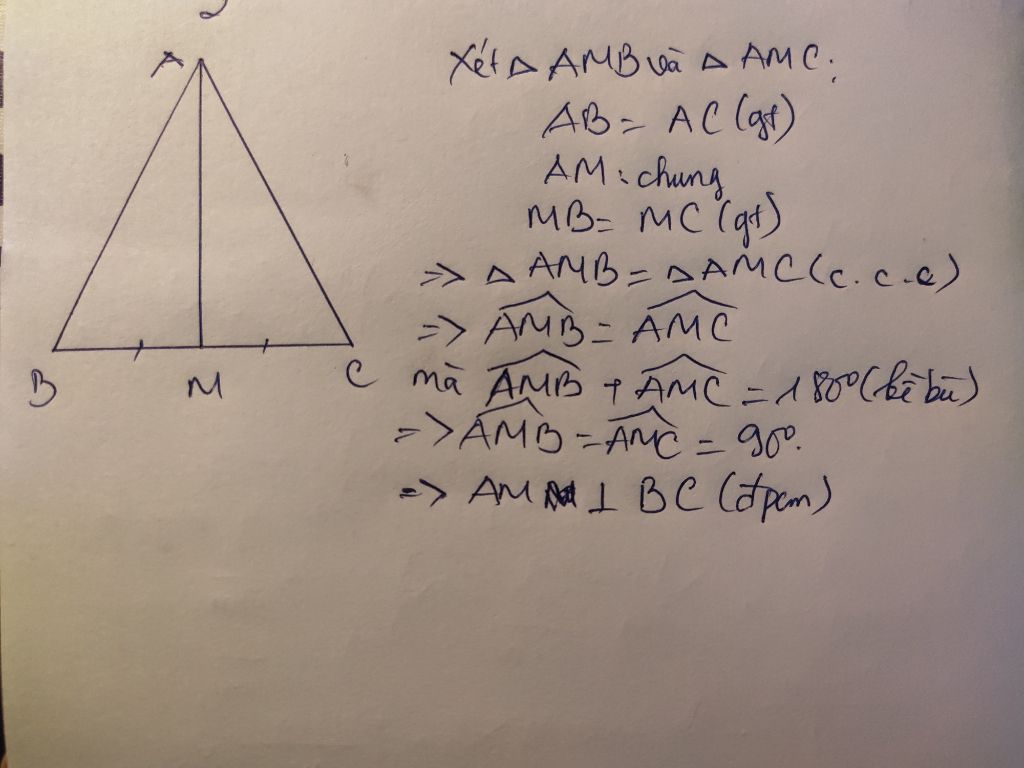 A
B
M
C
Xét △ AMB và △ AMC:
AB = AC (gt)
AM: chung
MB = MC (gt)
=> △ AMB = △ AMC (c.c.c)
=> \widehat{AMB} = \widehat{AMC}
mà \widehat{AMB} + \widehat{AMC} = 180° (kề bù)
=> \widehat{AMB} = \widehat{AMC} = 90°.
=> AM ⊥ BC (đpcm)